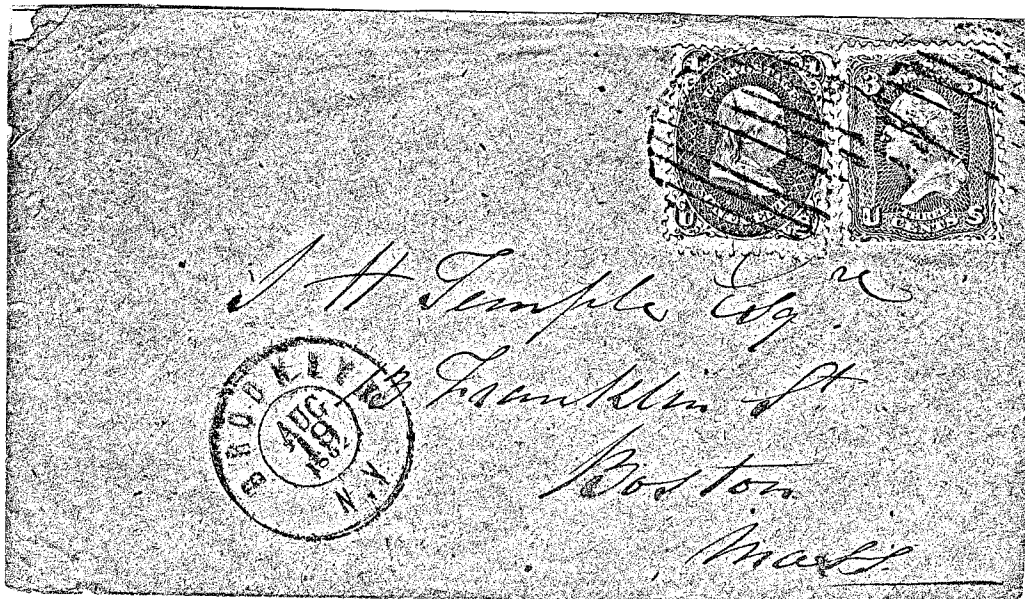 3 3
U S
J H Temple Esqre
13 Franklin St
Boston
Mass
BROOKLYN
AUG
19
N.Y.